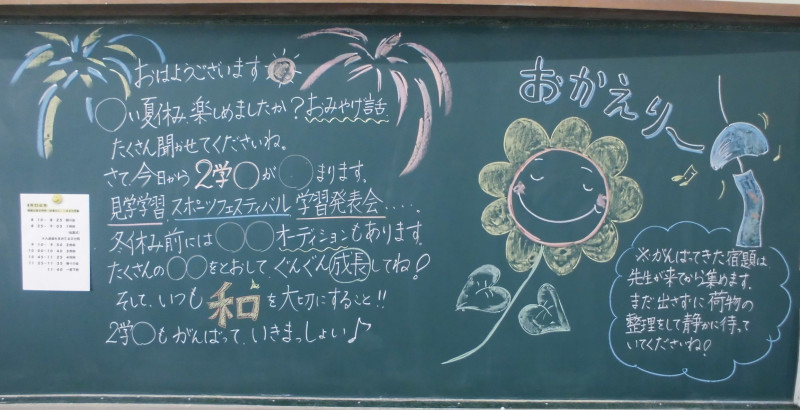 おはようございます
○い夏休み楽しめましたか?おみやげ話
たくさん聞かせてくださいね。
さて、今日から2学○が○まります。
見学学習 スポーツフェスティバル 学習発表会....
冬休み前には○○オーディションもあります。
たくさんの○○をとおして、ぐんぐん成長してね!
そして、いつも和を大切にすること!!
2学○もがんばって、いきまっしょい♪
おかえり〜
※がんばってきた宿題は
先生が来てから集めます。
まだ出さずに荷物の
整理をして静かに待っ
ていてくださいね!